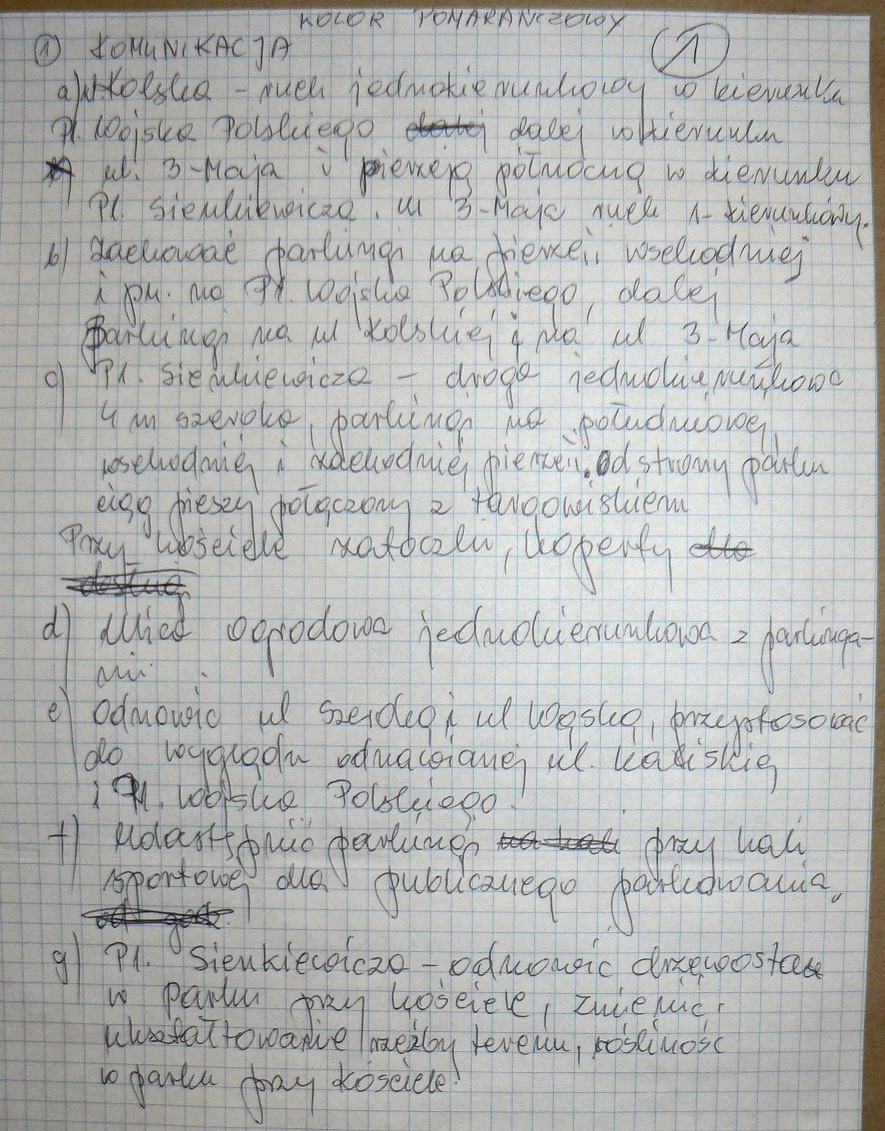 KOLOR POMARAŃCZOWY
① KOMUNIKACJA ①
a) ul. Kolska – ruch jednokierunkowy w kierunku
Pl. Wojska Polskiego dalej w kierunku
ul. 3-Maja i pierzeją północną w kierunku
Pl. Sienkiewicza. ul 3-Maja ruch 1-kierunkowy.
b) Zachować parkingi na pierzei wschodniej
i pn. na Pl. Wojska Polskiego, dalej
parkingi na ul Kolskiej i na ul 3-Maja
c) Pl. Sienkiewicza – droga jednokierunkowa
4 m szeroka, parkingi na południowej,
wschodniej i zachodniej pierzei. Od strony parku
ciąg pieszy połączony z targowiskiem
Przy kościele zatoczki, koperty
d) Ulica Ogrodowa jednokierunkowa z parkinga-
mi.
e) Odnowić ul Szeroką i ul Wąską, przystosować
do wyglądu odnawianej ul. Kaliskiej
i Pl. Wojska Polskiego.
f) Udostępnić parkingi przy hali
sportowej dla publicznego parkowania,
g) Pl. Sienkiewicza – odnowić drzewostan
w parku przy kościele, zmienić
ukształtowanie rzeźby terenu, roślinność
w parku przy kościele.